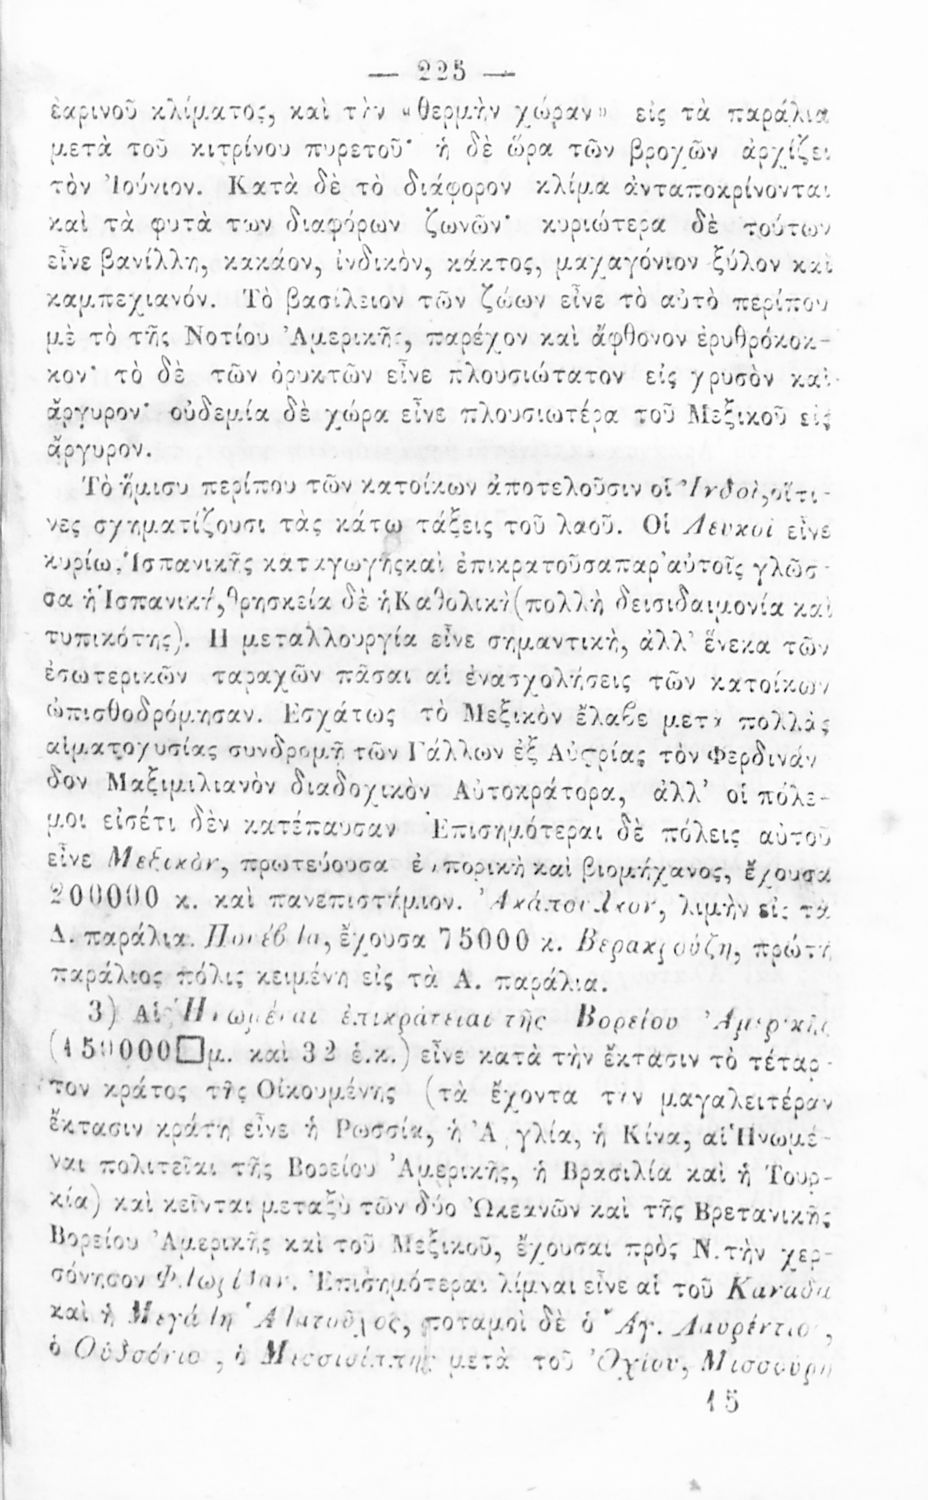 — 225 —
ἐαρινοῦ κλίματος, καὶ τὴν «θερμὴν χώραν» εἰς τὰ παράλια
μετὰ τοῦ κιτρίνου πυρετοῦ· ἡ δὲ ὥρα τῶν βροχῶν ἀρχίζει
τὸν Ἰούνιον. Κατὰ δὲ τὸ διάφορον κλίμα ἀνταποκρίνονται
καὶ τὰ φυτὰ των διαφόρων ζωνῶν· κυριώτερα δὲ τούτων
εἶνε βανίλλη, κακάον, ἰνδικὸν, κάκτος, μαχαγόνιον ξύλον καὶ
καμπεχιανόν. Τὸ βασίλειον τῶν ζώων εἶνε τὸ αὐτὸ περίπου
μὲ τὸ τῆς Νοτίου Ἀμερικῆς, παρέχον καὶ ἄφθονον ἐρυθρόκοκ-
κον· τὸ δὲ τῶν ὀρυκτῶν εἶνε πλουσιώτατον εἰς χρυσὸν καὶ
ἄργυρον· οὐδεμία δὲ χώρα εἶνε πλουσιωτέρα τοῦ Μεξικοῦ εἰς
ἄργυρον.
Τὸ ἥμισυ περίπου τῶν κατοίκων ἀποτελοῦσιν οἱ Ἰνδοὶ, οἵτι-
νες σχηματίζουσι τὰς κάτω τάξεις τοῦ λαοῦ. Οἱ Λευκοὶ εἶνε
κυρίω, Ἱσπανικῆς καταγωγῆςκαὶ ἐπικρατοῦσαπαρ' αὐτοῖς γλῶσ-
σα ἡ Ἱσπανικὴ, θρησκεία δὲ ἡ Καθολικὴ (πολλὴ δεισιδαιμονία καὶ
τυπικότης). Η μεταλλουργία εἶνε σημαντικὴ, ἀλλ' ἕνεκα τῶν
ἐσωτερικῶν ταραχῶν πᾶσαι αἱ ἐνασχολήσεις τῶν κατοίκων
ὠπισθοδρόμησαν. Εσχάτως τὸ Μεξικὸν ἔλαβε μετὰ πολλὰς
αἱματοχυσίας συνδρομῇ τῶν Γάλλων ἐξ Αὐστρίας τὸν Φερδινάν
δον Μαξιμιλιανὸν διαδοχικὸν Αὐτοκράτορα, ἀλλ' οἱ πόλε-
μοι εἰσέτι δὲν κατέπαυσαν Ἐπισημότεραι δὲ πόλεις αὐτοῦ
εἶνε Μεξικὸν, πρωτεύουσα ἐμπορικὴ καὶ βιομήχανος, ἔχουσα
200000 κ. καὶ πανεπιστήμιον. Ἀκάπουλκον, λιμὴν εἰς τὰ
Δ. παράλια. Πουέβλα, ἔχουσα 75000 κ. Βερακρούζη, πρώτη
παράλιος πόλις κειμένη εἰς τὰ Α. παράλια.
3) Αἱ Ἡνωμέναι ἐπικράτειαι τῆς Βορείου Ἀμερικῆς
(150000□μ. καὶ 32 ἑ.κ.) εἶνε κατὰ τὴν ἔκτασιν τὸ τέταρ-
τον κράτος τῆς Οἰκουμένης (τὰ ἔχοντα τὴν μαγαλειτέραν
ἔκτασιν κράτη εἶνε ἡ Ρωσσία, ἡ Ἀγγλία, ἡ Κίνα, αἱ Ἡνωμέ-
ναι πολιτεῖαι τῆς Βορείου Ἀμερικῆς, ἡ Βρασιλία καὶ ἡ Τουρ-
κία) καὶ κεῖνται μεταξὺ τῶν δύο Ὠκεανῶν καὶ τῆς Βρετανικῆς
Βορείου Ἀμερικῆς καὶ τοῦ Μεξικοῦ, ἔχουσαι πρὸς Ν. τὴν χερ-
σόνησον Φλωρίδαν. Ἐπισημότεραι λίμναι εἶνε αἱ τοῦ Καναδα
καὶ ἡ Μεγάλη Ἁλατοῦχος, ποταμοὶ δὲ ὁ Ἁγ. Λαυρέντιο ,
ὁ Οὐδσόνιο , ὁ Μισσισίππης μετὰ τοῦ Ὀχίου, Μισσούρη
15